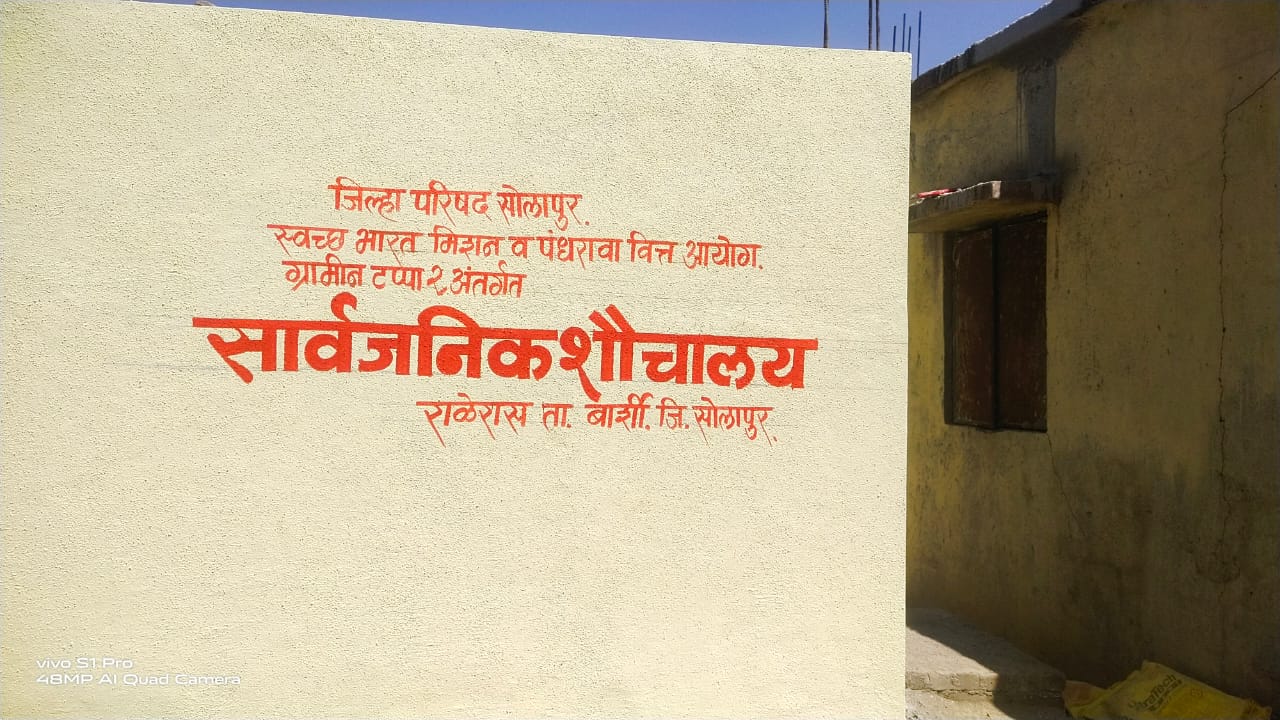 जिल्हा परिषद सोलापुर.
स्वच्छ भारत मिशन व पंधरावा वित्त आयोग.
ग्रामीन टप्पा २ अंतर्गत
सार्वजनिक शौचालय
राळेरास ता. बार्शी. जि. सोलापुर.
vivo S1 Pro
48MP AI Quad Camera